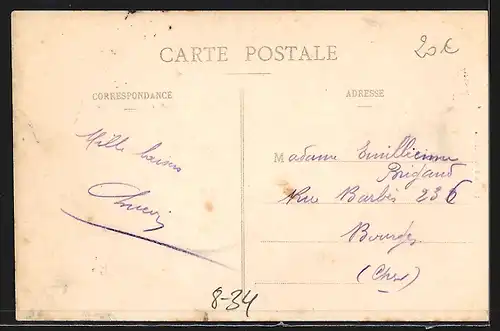 CARTE POSTALE
20€
CORRESPONDANCE
ADRESSE
Mille baisers
Madame
Brigand
Rue Barbès 236
Bourges
(Cher)
8-34